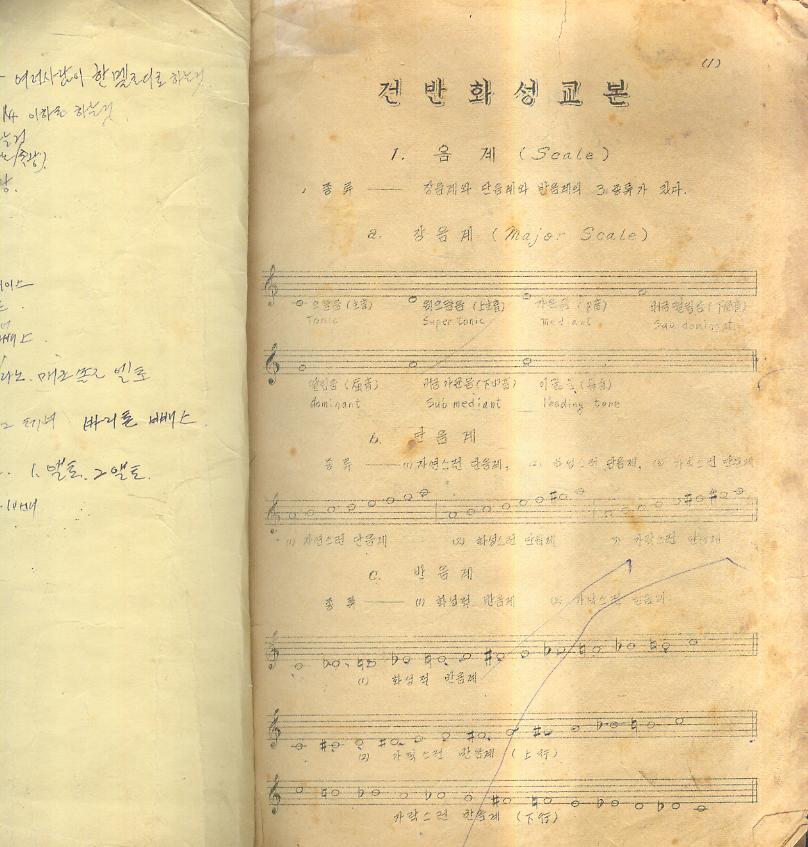 여러사람이 한 멜로디로 하는것
이하로 하는것
는것
이스
메조 쏘프 엘토
2 테너 바리톤 빼스
1. 엘토, 2 앨토.
(1)
건반화성교본
1. 음계 (Scale)
종류 —— 장음계와 단음계와 반음계의 3 종류가 있다.
a. 장음계 (Major Scale)
으뜸음 (主音) 윗으뜸음 (上主音) 가온음 버금딸림음
Tonic Super tonic mediant Sub dominant
딸림음 (属音) 버금가온음 (下中音) 이끎음 (導音)
dominant Sub mediant leading tone
b. 단음계
종류 —— (1) 자연스런 단음계, (2) 화성스런 단음계, (3) 가락스런 단음계
(1) 자연스런 단음계 (2) 화성스런 단음계 가락스런 단음계
c. 반음계
종류 —— (1) 화성적 반음계 (2) 가락스런 반음계
(1) 화성적 반음계
(2) 가락스런 반음계 (上行)
가락스런 반음계 (下行)